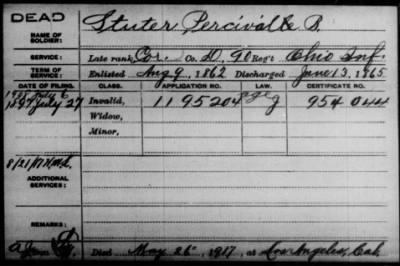 DEAD
NAME OF SOLDIER: Stuter Percival R.
SERVICE: Late rank, Cor. Co. D, 90 Reg't Ohio Inf.
TERM OF SERVICE: Enlisted Aug 9, 1862 Discharged June 13, 1865
DATE OF FILING. CLASS. APPLICATION NO. LAW. CERTIFICATE NO.
July 6
1897 July 27 Invalid, 1195204 954044
Widow,
Minor,
ADDITIONAL SERVICES:
REMARKS:
Died May 26", 1917, at Los Angeles, Cal.